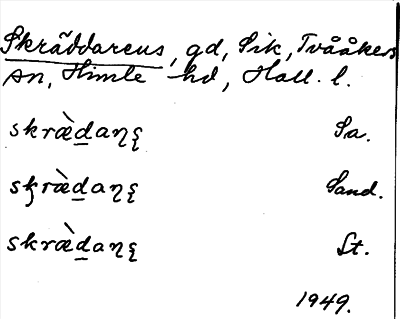 Skräddareus, gd, Sik, Tvååkers
sn, Himle hd, Hall. l.
skræ̀daƞę Sa.
skræ̀daƞę Sand.
skræ̀daƞę St.
1949.